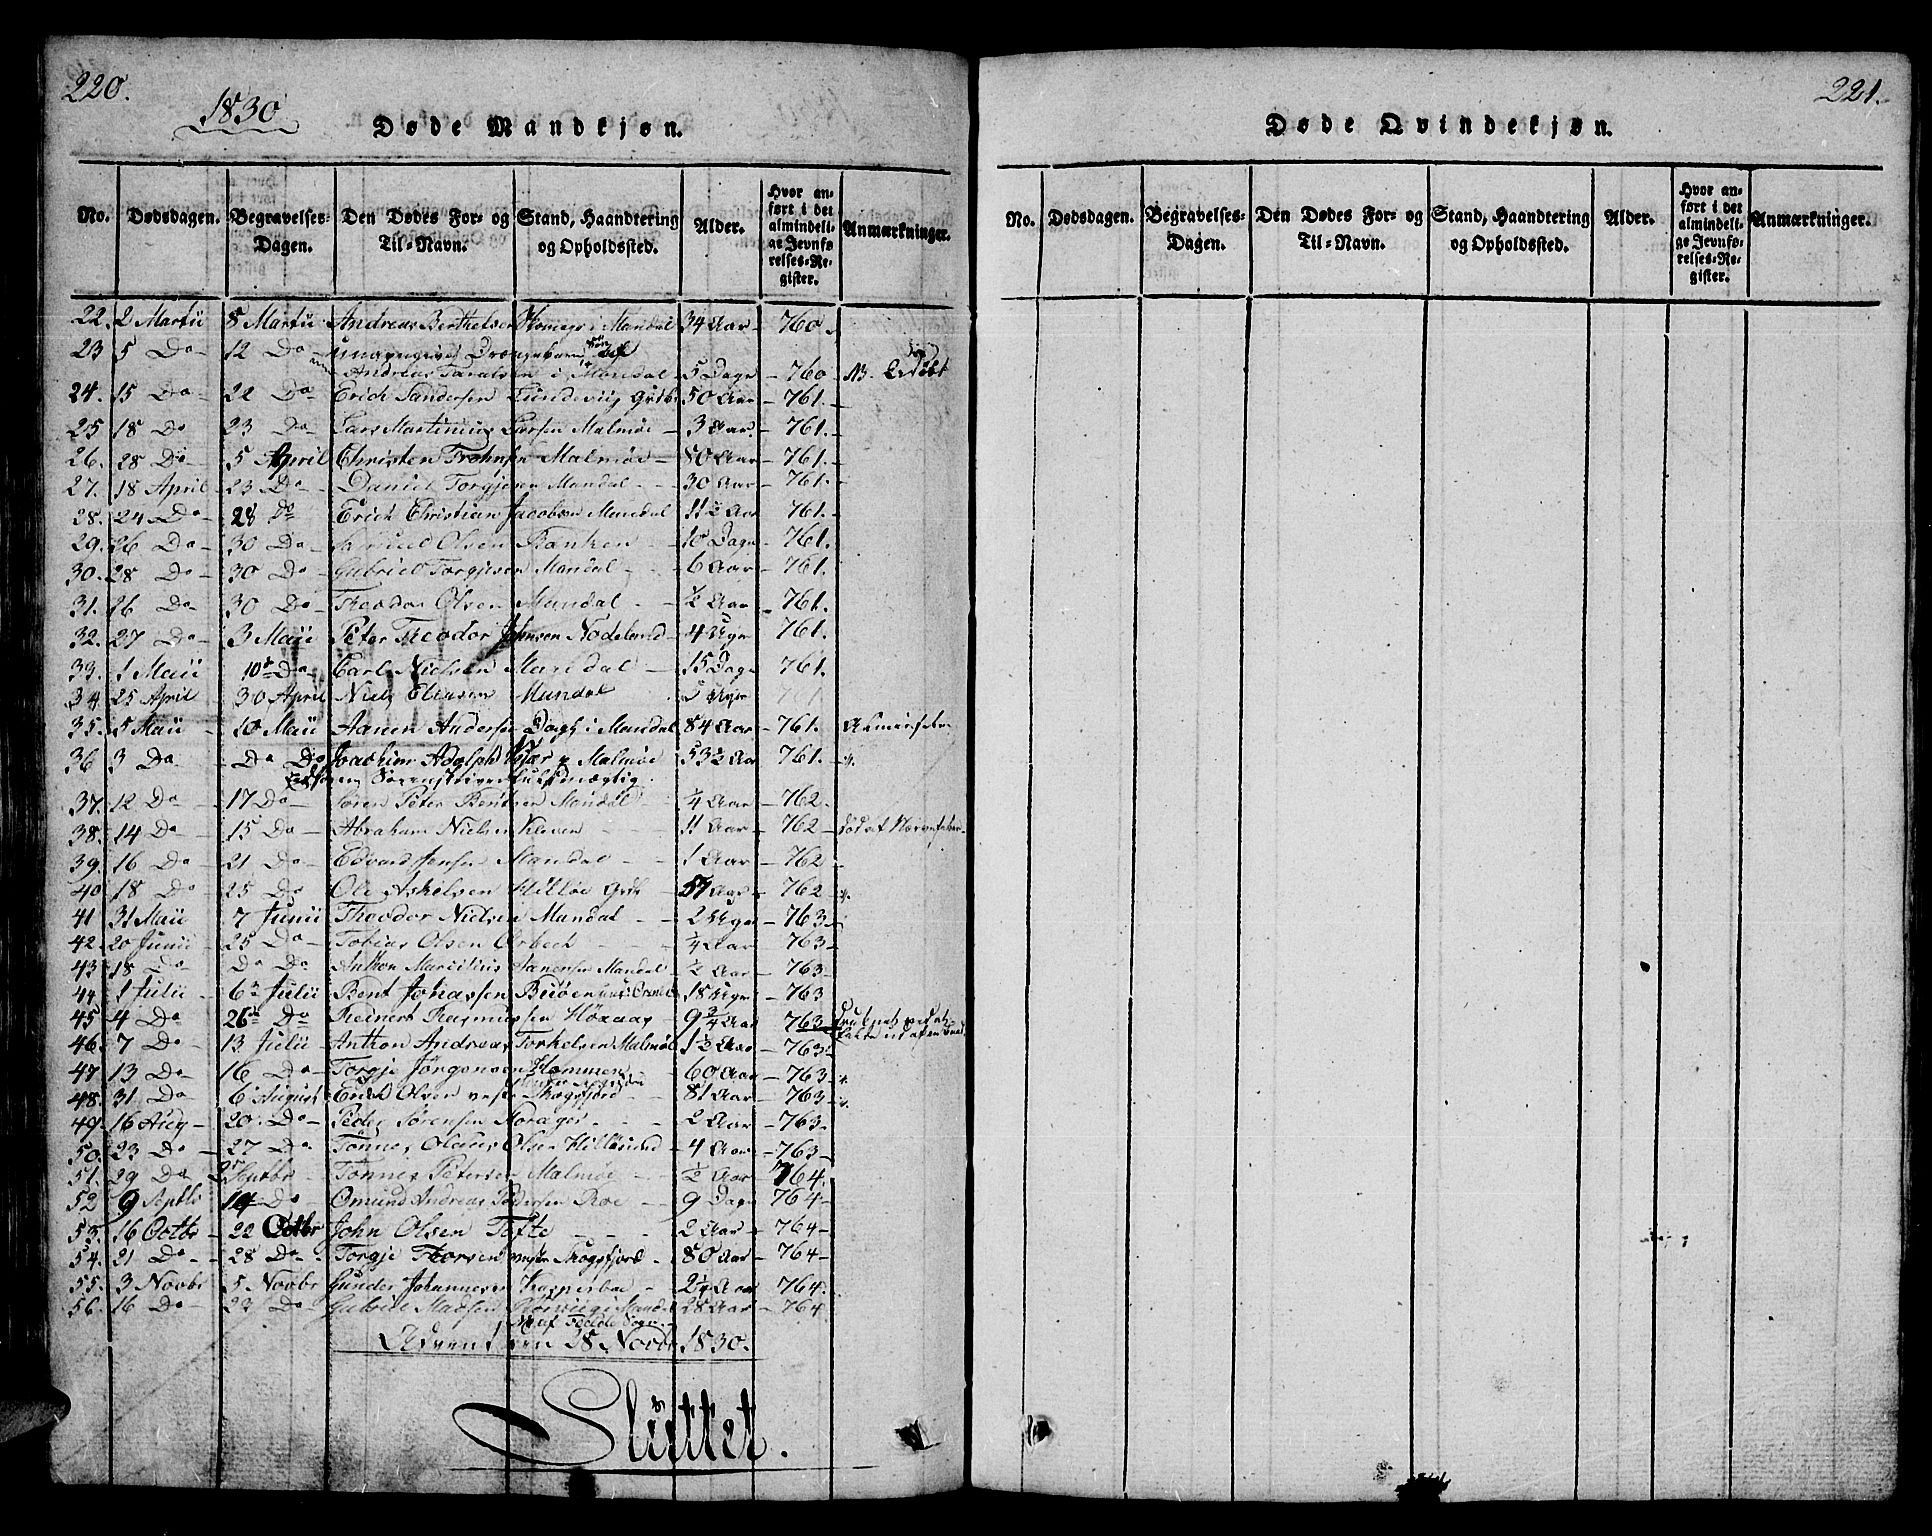 220.
1830
Døde Mandkjøn.
No. Dødsdagen. Begravelses-Dagen. Den Dødes For- og Til-Navn. Stand, Haandtering og Opholdssted. Alder. Hvor anført i det almindelige Jevnførelses-Register. Anmærkninger.
22. 2 Martii 8 Martii Andreas Berthelsen i Mandal 34 Aar 760.
23 5 Do 12 Do unavngivet Drengebarn af
Andreas Taralsen i Mandal 5 Dage 760 NB.
24. 15 Do 22 Do Erich Sandersen Lundevig 50 Aar 761.
25 18 Do 23 Do Lars Martinius Larsen Malmøe 3 Aar 761.
26. 28 Do 5 April Christen Malmøe 80 Aar 761.
27. 18 April 23 Do Daniel Torgjesen Mandal 30 Aar 761.
28. 24 Do 28 Do Erich Christian Jacobsen Mandal 11½ Aar 761.
29. 26 Do 30 Do Samuel Olsen 10 Dage 761.
30. 28 Do 30 Do Gabriel Torgjesen Mandal 6 Aar 761.
31. 26 Do 30 Do Theodor Olsen Mandal ½ Aar 761.
32. 27 Do 3 Maii Peter Theodor Johnsen Nodeland 4 Uger 761.
33. 1 Maii 10 Do Carl Nielsen Mandal 15 Dage 761.
34 25 April 30 April Niels Eliassen Mandal Uger 761
35. 5 Maii 10 Maii Aanen Andersen i Mandal 84 Aar 761.
36 3 Do Do Do Joachim Adolph Kjær Malmøe 53½ Aar 761.
Sorenskriverfuldmægtig.
37. 12 Do 17 Do Søren Peter Bentsen Mandal ¼ Aar 762.
38. 14 Do 15 Do Abraham Nielsen Kleven 11 Aar 762 død af
39. 16 Do 21 Do Edvard Jensen Mandal 1 Aar 762
40 18 Do 25 Do Ole Askelsen Hilløe 57 Aar 762
41 31 Maii 7 Junii Theodor Nielsen Mandal 2 Uger 763
42. 20 Junii 25 Do Tobias Olsen Orbech ¼ Aar 763
43 18 Do Do Do Anthon Mandal ½ Aar 763
44 1 Julii 6 Julii Bent Johassen Buøen 18 Uger 763
45 4 Do 26 Do Reinert Rasmussen Høxaas 9¾ Aar 763
46. 7 Do 13 Julii Anthon Andreas Torkelsen Malmøe 1½ Aar 763
47 13 Do 16 Do Torgje Jørgensen Hommen 60 Aar 763
48. 31 Do 6 August Olsen Skogsfjord 81 Aar 763
49. 16 Aug 20. Do Peder Sørensen 2 Aar 763
50. 23 Do 27 Do Tønnes Olaus Olsen Hillesund 4 Aar 763
51. 29 Do Septbr Tønnes Petersen Malmøe ½ Aar 764.
52 9 Septb 14 Do Omund Andreas Pedersen Roe 9 Dage 764
53. 16 Octbr 22 Octbr John Olsen Tofte 2 Aar 764
54. 21 Do 28 Do Torgje Thorsen Skogsfjord 80 Aar 764
55. 3 Novbr 5 Novbr Gunder Johannesen 2¼ Aar 764.
56. 16 Do 23 Do Gabriel Madsen i Mandal 28 Aar 764
af Sogn
Advent den 28 Novbr 1830.
Sluttet.
221.
Døde Qvindekjøn.
No. Dødsdagen. Begravelses-Dagen. Den Dødes For- og Til-Navn. Stand, Haandtering og Opholdssted. Alder. Hvor anført i det almindelige Jevnførelses-Register. Anmærkninger.